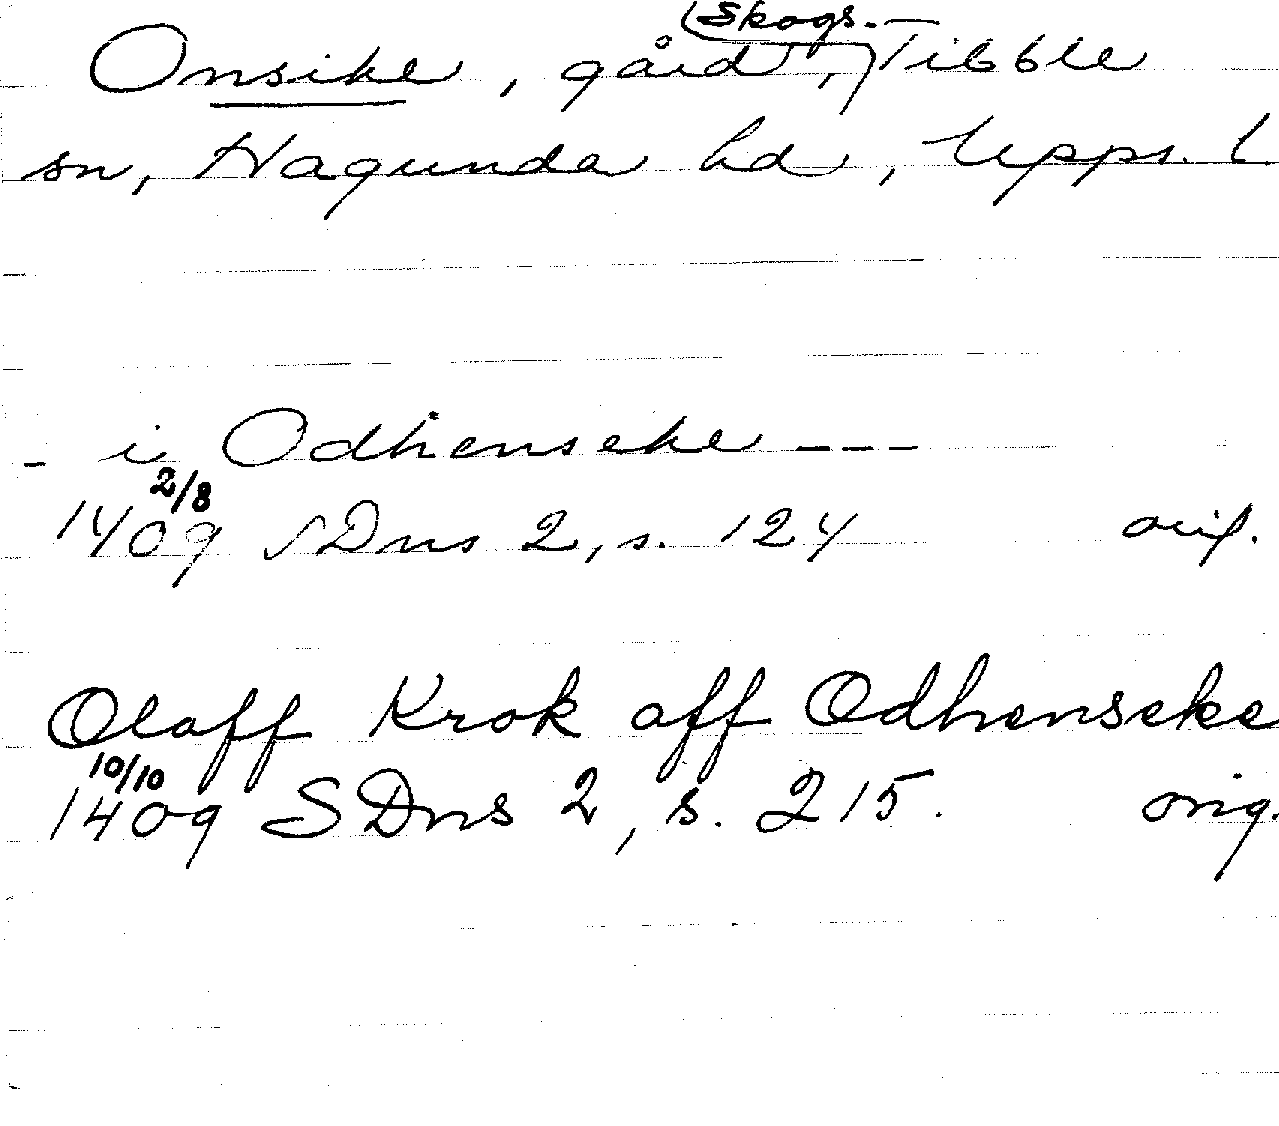 Skogs-
Onsike, gård, Tibble
sn, Hagunda hd, Upps. l
- i Odhenseke ---
2/8
1409 SDns 2, s. 124 orig.
Olaff Krok aff Odhenseke
10/10
1409 SDns 2, s. 215. orig.